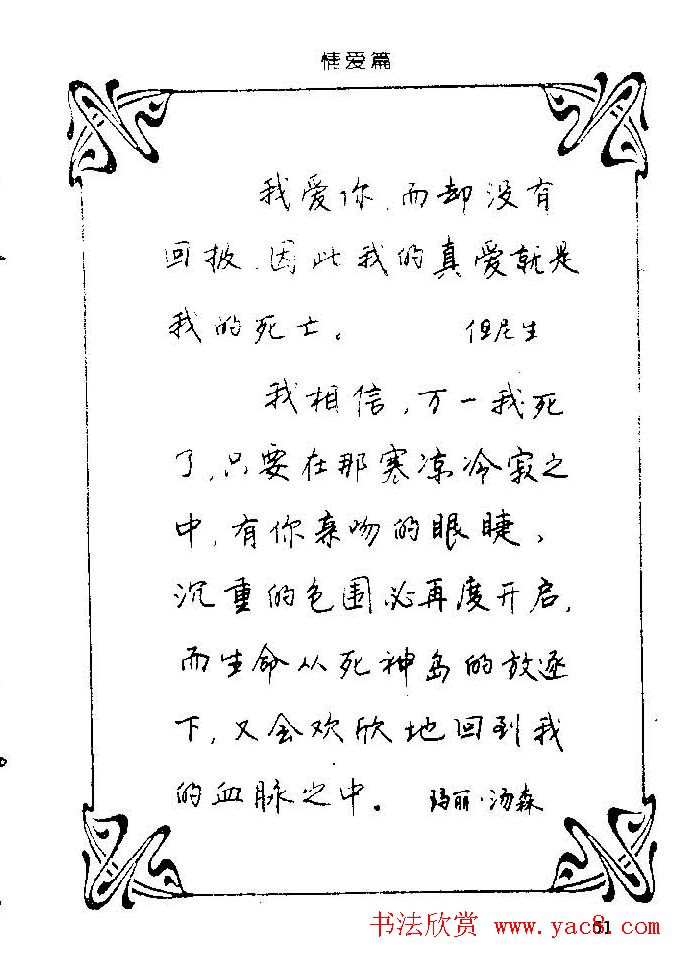 情爱篇
我爱你,而却没有
回报,因此我的真爱就是
我的死亡。 但尼生
我相信,万一我死
了,只要在那寒凉冷寂之
中,有你亲吻的眼睫,
沉重的包围必再度开启,
而生命从死神岛的放逐
下,又会欢欣地回到我
的血脉之中。 玛丽·汤森
书法欣赏 www.yac8.com
51